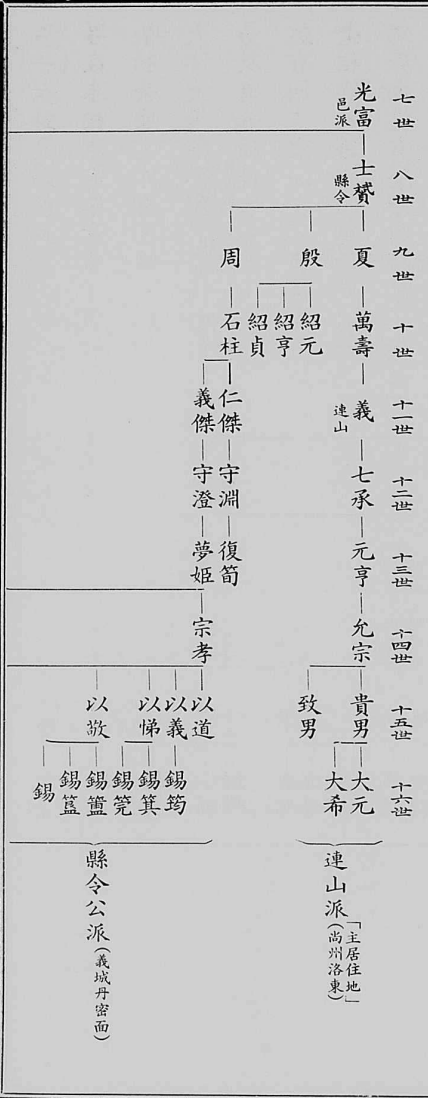 七世 八世 九世 十世 十一世 十二世 十三世 十四世 十五世 十六世
光富 邑派
士贇 縣令
夏 萬壽 義 連山 七承 元亨 允宗 貴男 大元
大希
致男
連山派
「主居住地」
(尙州洛東)
殷 紹元
紹亨
紹貞
周 石柱 仁傑 守淵 復筍
義傑 守澄 夢姬 宗孝
以道
以義 錫筠
以悌 錫箕
錫箢
以敬 錫簠
錫簋
錫
縣令公派(義城丹密面)